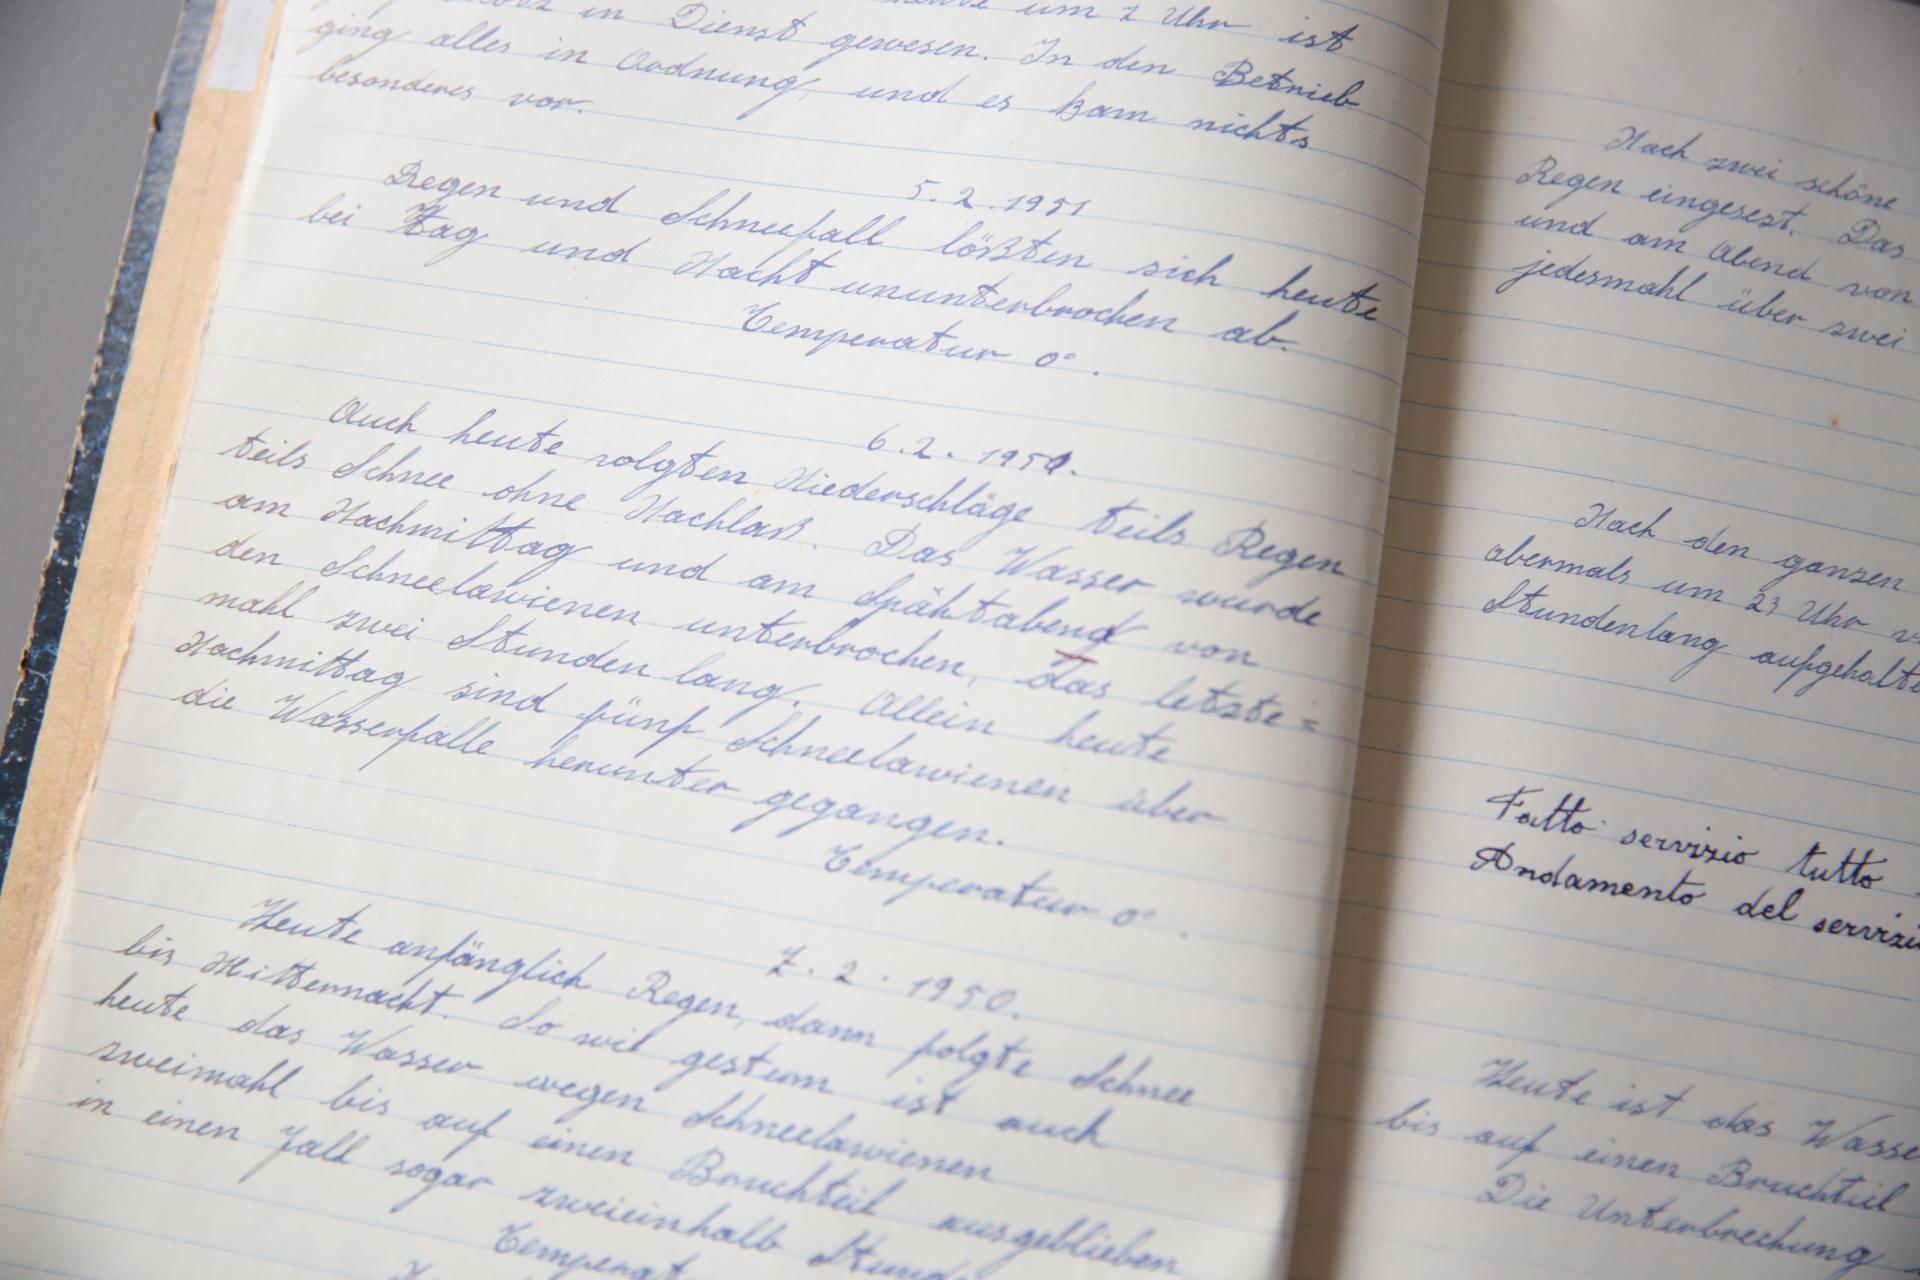 in Dienst gewesen. um 7 Uhr ist
ging alles in Ordnung, und es kam nichts In den Betrieb
besonderes vor.
5.2.1951
Regen und Schneefall lößten sich heute
bei Tag und Nacht ununterbrochen ab.
Temperatur 0°.
6.2.1951.
Auch heute folgten Niederschläge teils Regen
teils Schnee ohne Nachlaß. Das Wasser wurde
am Nachmittag und am Spähtabend von
den Schneelawienen unterbrochen, das letzte=
mahl zwei Stunden lang. Allein heute
Nachmittag sind fünf Schneelawienen über
die Wasserfalle herunter gegangen.
Temperatur 0°.
7.2.1950.
Heute anfänglich Regen, dann folgte Schnee
bis Mitternacht. So wie gestern ist auch
heute das Wasser wegen Schneelawienen
zweimahl bis auf einen Bruchteil ausgeblieben
in einen Fall sogar zweieinhalb
Nach zwei schöne
Regen eingesezt. Das
und am Abend von
jedesmahl über zwei
Nach den ganzen
abermals um 23 Uhr
Stundenlang
Fatto servizio tutto
Andamento del
Heute ist das
bis auf einen Bruchteil
Die Unterbrechung